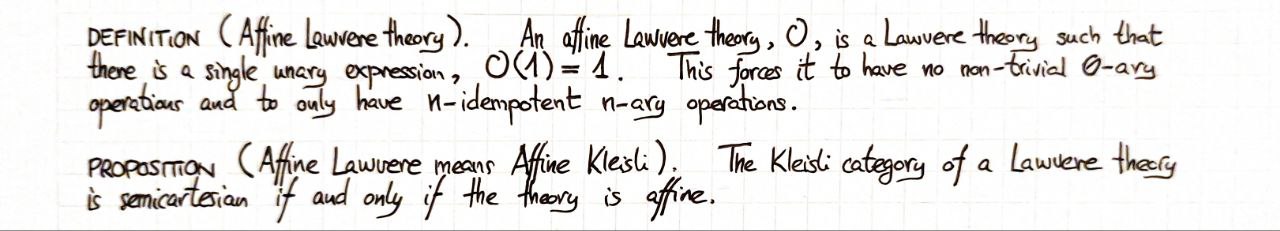 DEFINITION (Affine Lawvere theory). An affine Lawvere theory, O, is a Lawvere theory such that
there is a single unary expression, O(1) = 1. This forces it to have no non-trivial 0-ary
operations and to only have n-idempotent n-ary operations.
PROPOSITION (Affine Lawvere means Affine Kleisli). The Kleisli category of a Lawvere theory
is semicartesian if and only if the theory is affine.